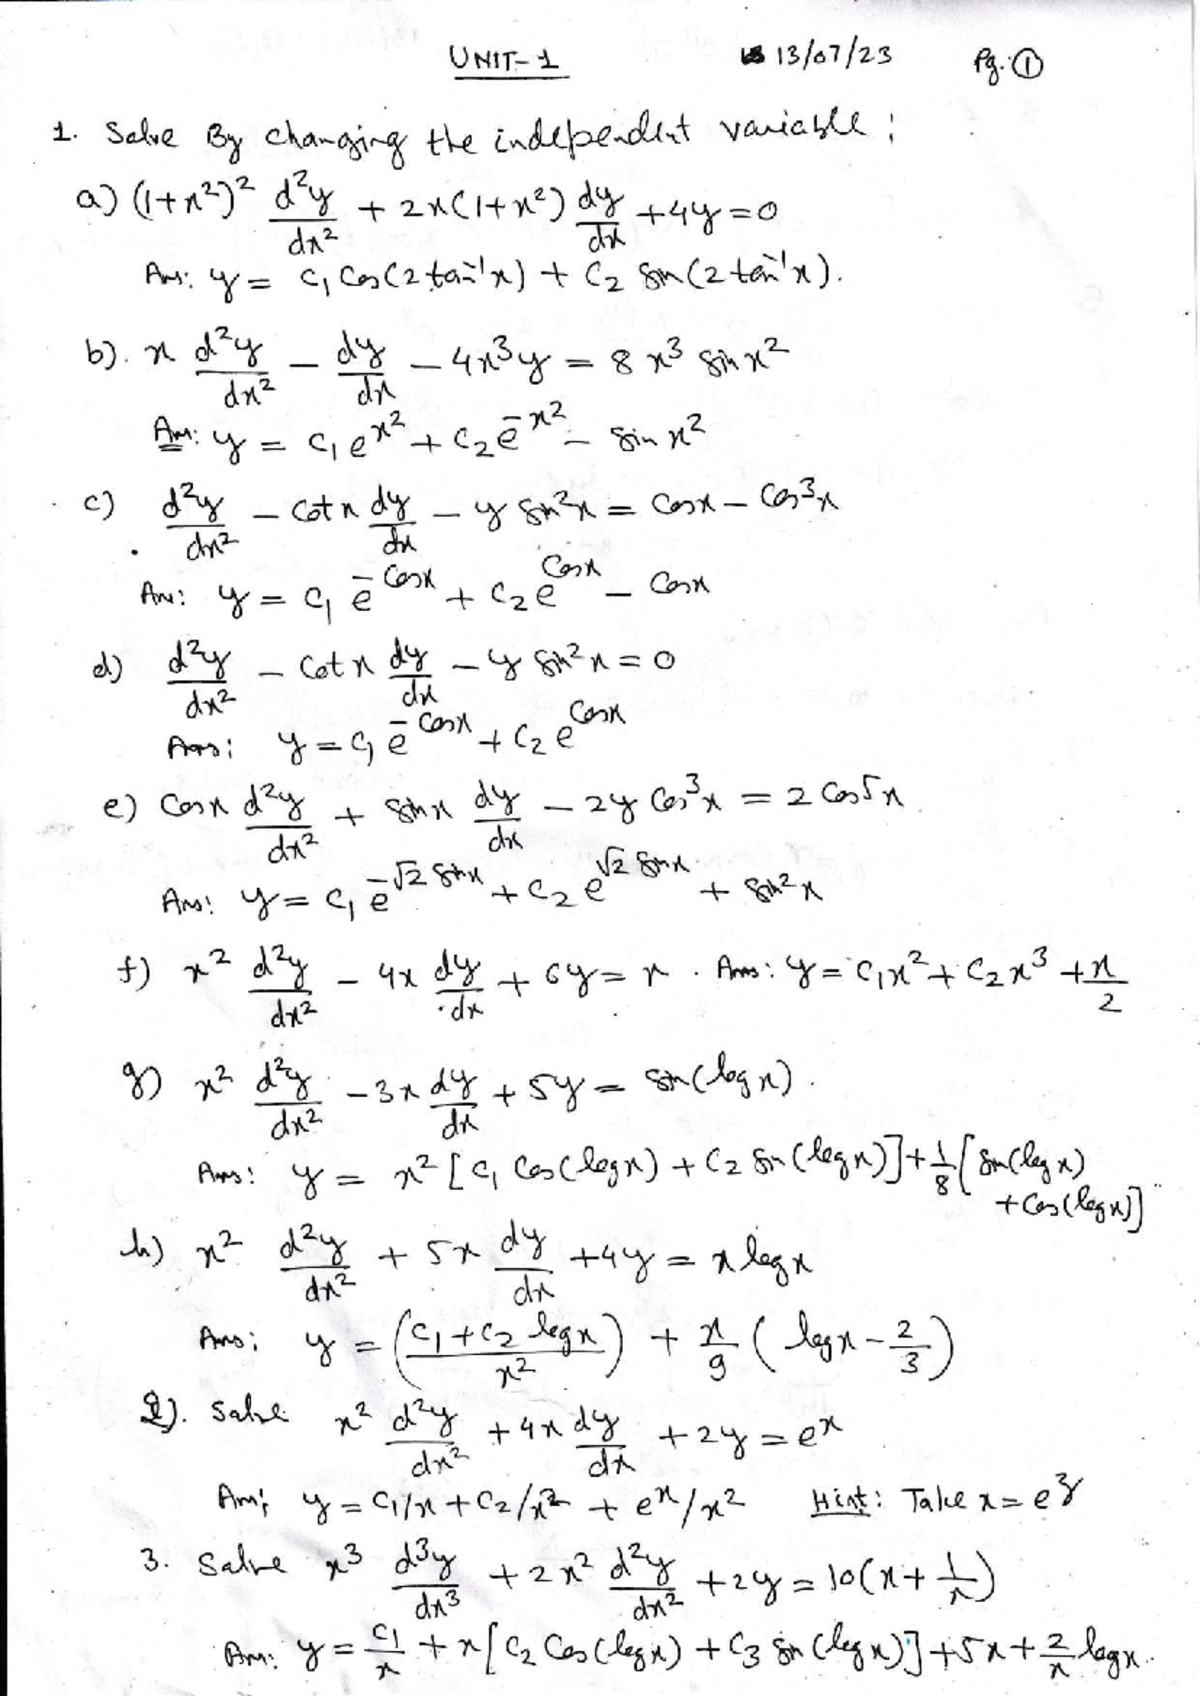 UNIT-1 13/07/23 Pg. ①
1. Solve By changing the independent variable :
a) (1+x²)² d²y/dx² + 2x(1+x²) dy/dx + 4y = 0
Ans: y = c₁ Cos(2 tan⁻¹x) + C₂ Sin(2 tan⁻¹x).
b). x d²y/dx² – dy/dx – 4x³y = 8 x³ Sin x²
Ans: y = c₁ e^(x²) + C₂ e^(-x²) – Sin x²
c) d²y/dx² – Cot x dy/dx – y Sin²x = Cosx – Cos³x
Ans: y = c₁ e^(-Cosx) + C₂ e^(Cosx) – Cosx
d) d²y/dx² – Cot x dy/dx – y Sin²x = 0
Ans: y = c₁ e^(-Cosx) + C₂ e^(Cosx)
e) Cosx d²y/dx² + Sinx dy/dx – 2y Cos³x = 2 Cos⁵x
Ans: y = c₁ e^(-√2 Sinx) + C₂ e^(√2 Sinx) + Sin²x
f) x² d²y/dx² – 4x dy/dx + 6y = x . Ans: y = c₁x² + C₂x³ + x/2
g) x² d²y/dx² – 3x dy/dx + 5y = Sin(log x).
Ans: y = x² [c₁ Cos(logx) + C₂ Sin(logx)] + 1/8 [Sin(logx)
+ Cos(logx)]
h) x² d²y/dx² + 5x dy/dx + 4y = x logx
Ans: y = ((c₁ + C₂ logx)/x²) + x/9 (logx – 2/3)
2). Solve x² d²y/dx² + 4x dy/dx + 2y = e^x
Ans: y = C₁/x + C₂/x² + e^x/x² Hint: Take x = e^z
3. Solve x³ d³y/dx³ + 2x² d²y/dx² + 2y = 10(x + 1/x)
Ans: y = C₁/x + x[C₂ Cos(logx) + C₃ Sin(logx)] + 5x + 2/x logx.